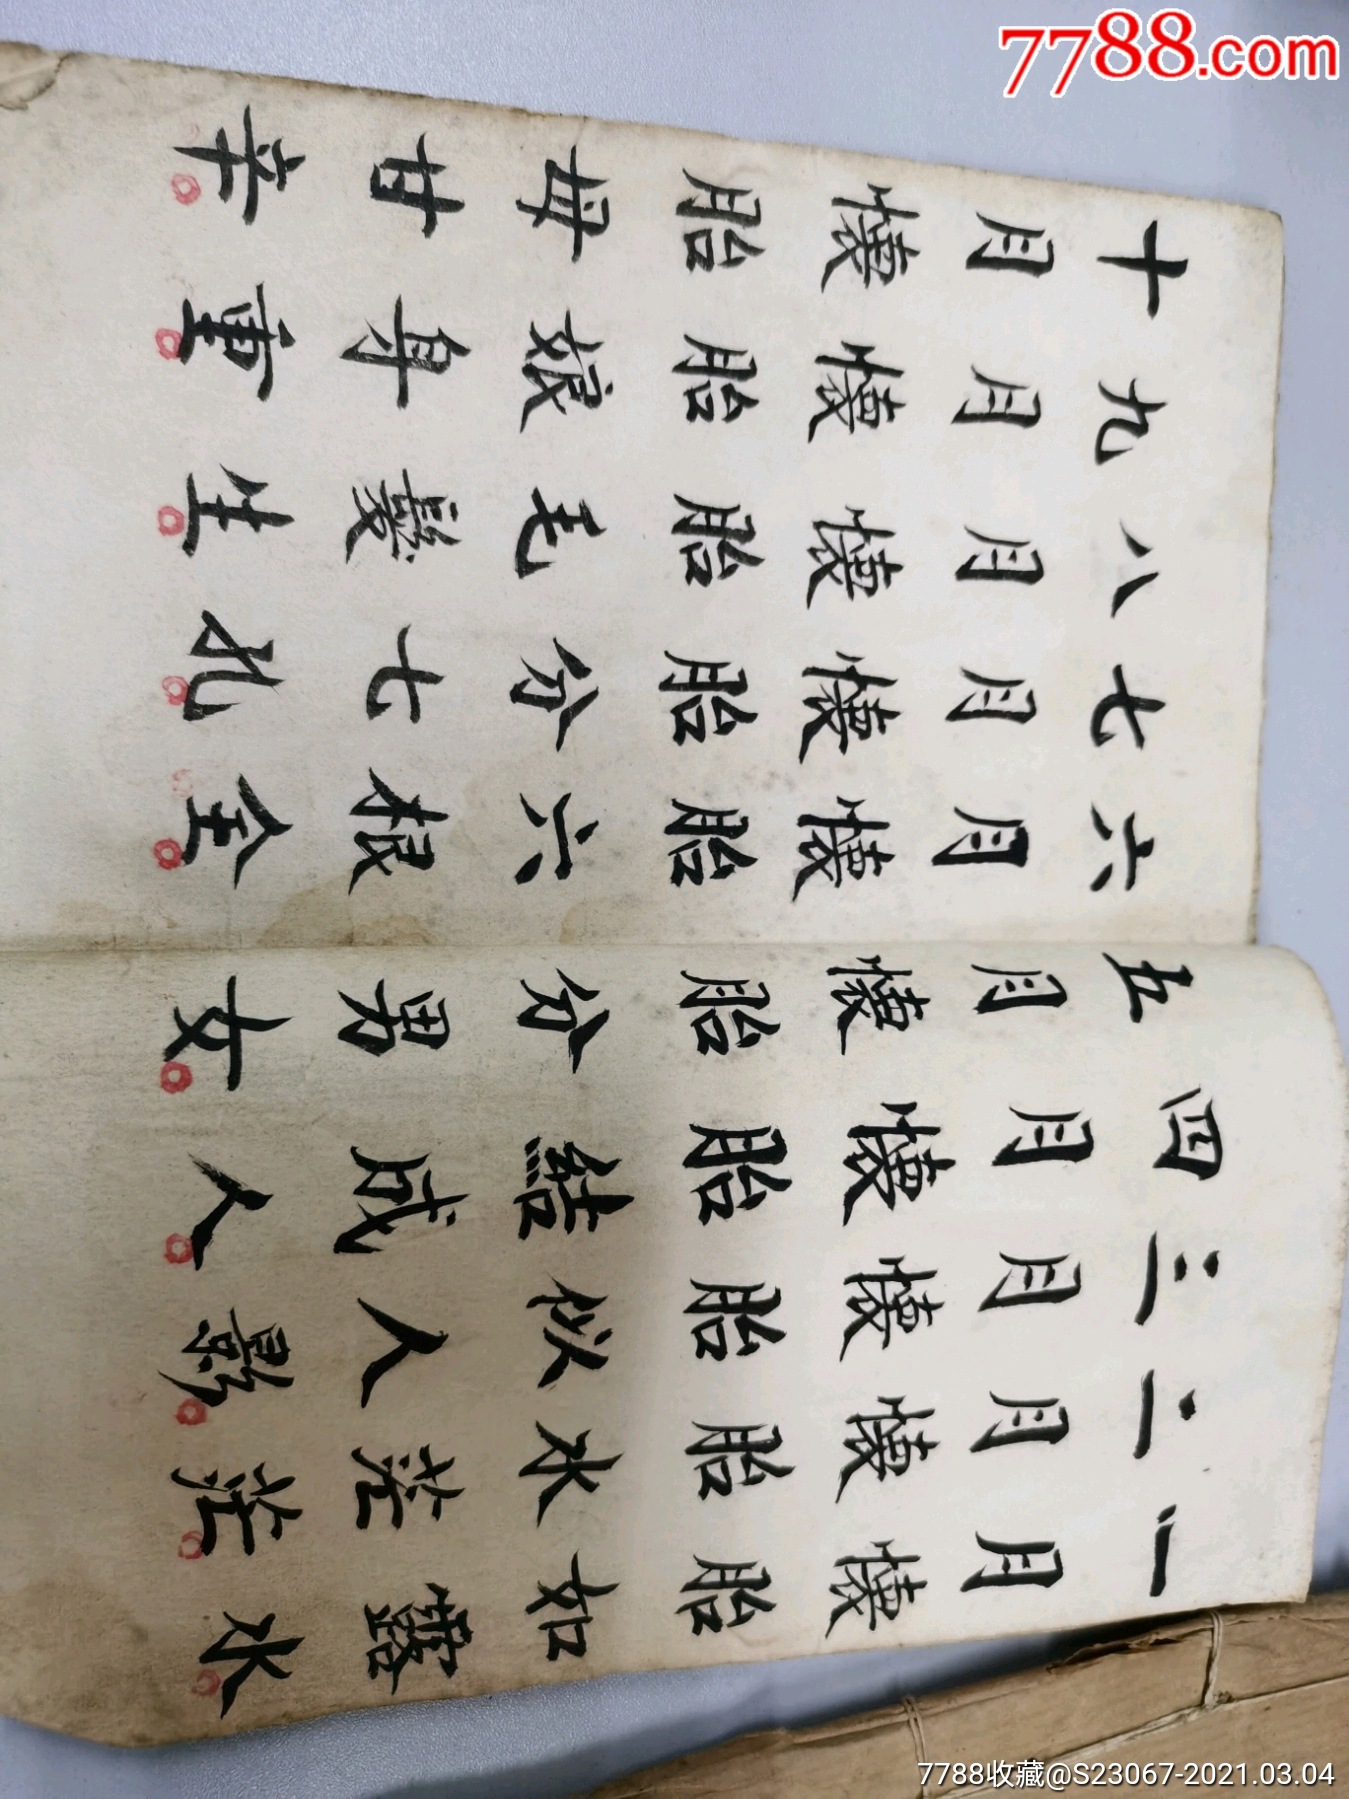 一月懷胎如露水
二月懷胎水茫茫
三月懷胎似人影
四月懷胎結成人
五月懷胎分男女
六月懷胎六根全
七月懷胎分七孔
八月懷胎毛髮生
九月懷胎娘身重
十月懷胎母甘辛
7788.com
7788收藏@S23067-2021.03.04